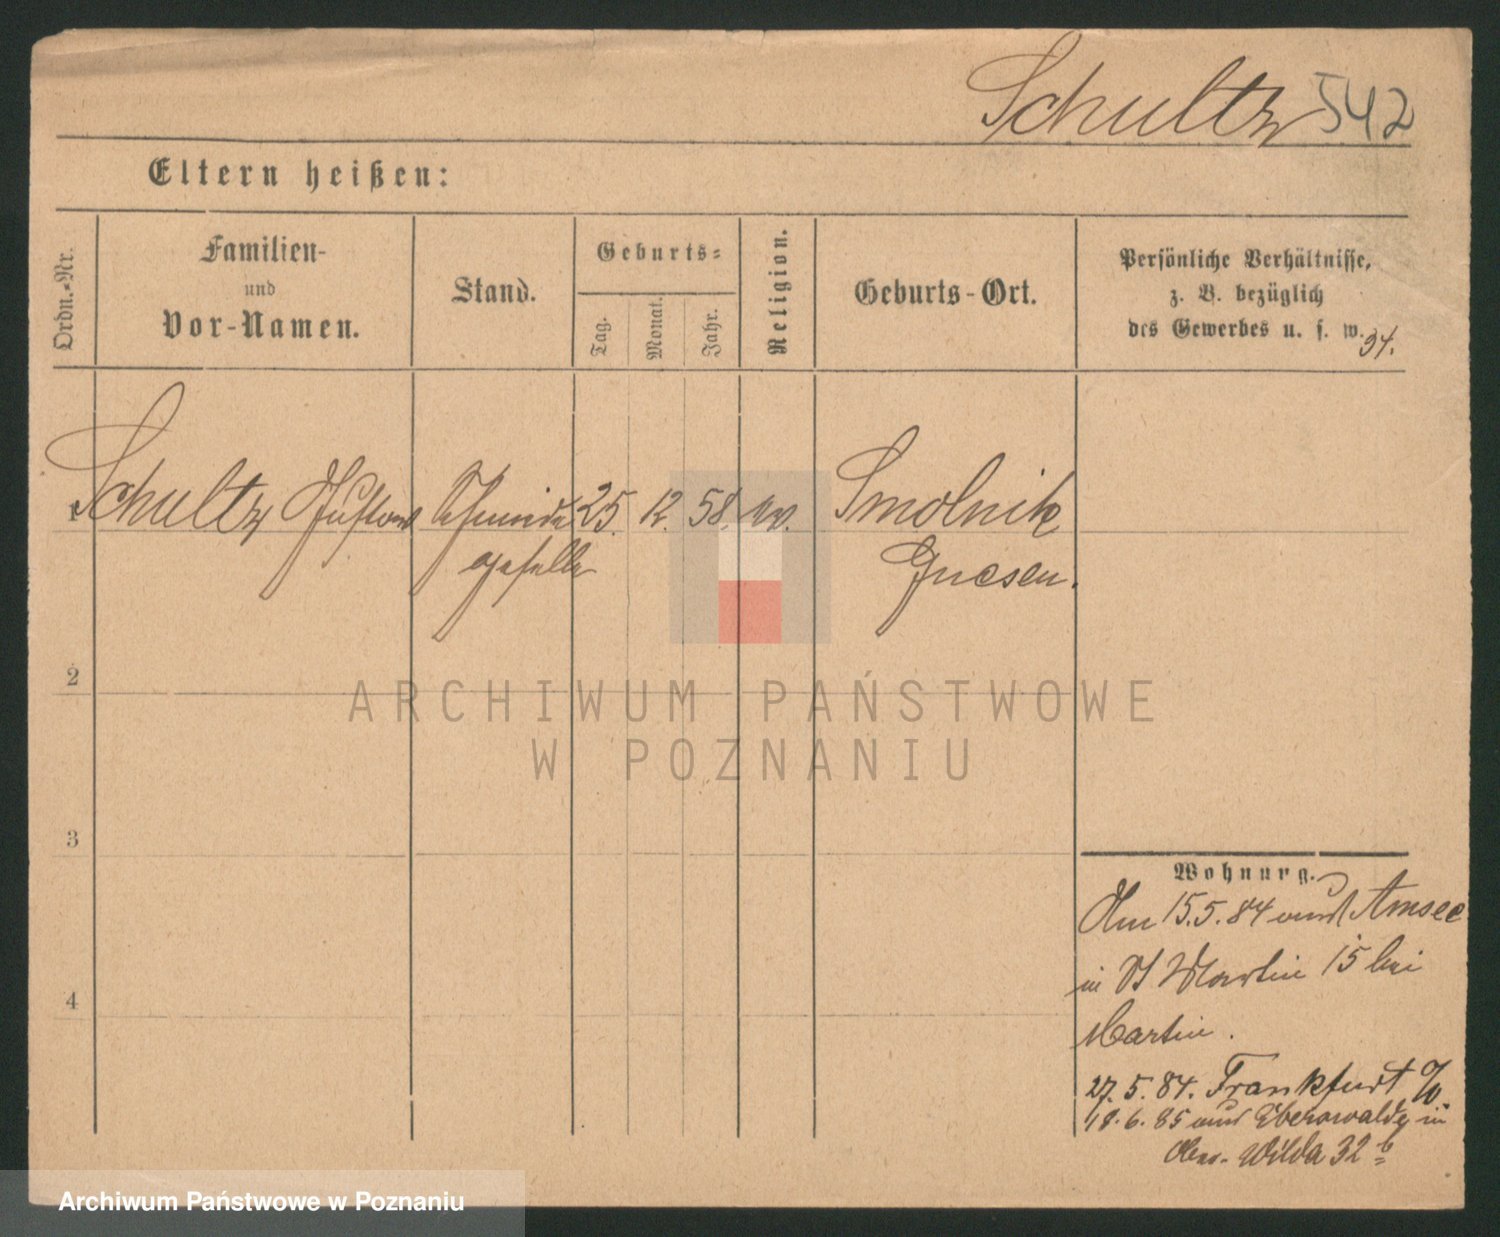 Schultz 542
Eltern heißen:
Ordn.=Nr.
Familien-
und
Vor-Namen.
Stand.
Geburts=
Tag.
Monat.
Jahr.
Religion.
Geburts-Ort.
Persönliche Verhältnisse,
z. B. bezüglich
des Gewerbes u. s. w.
94.
1 Schultz Gustav Schmiede 25. 12. 58. ev. Smolnik
geselle Gnesen.
2
ARCHIWUM PAŃSTWOWE
W POZNANIU
3
Wohnung.
Am 15.5.84 aus Amsee
in St Martin 15 bei
Martin.
27.5.84. Frankfurt a/O.
18.6.85 aus Eberswalde in
4
Ober-Wilda 32 b
Archiwum Państwowe w Poznaniu